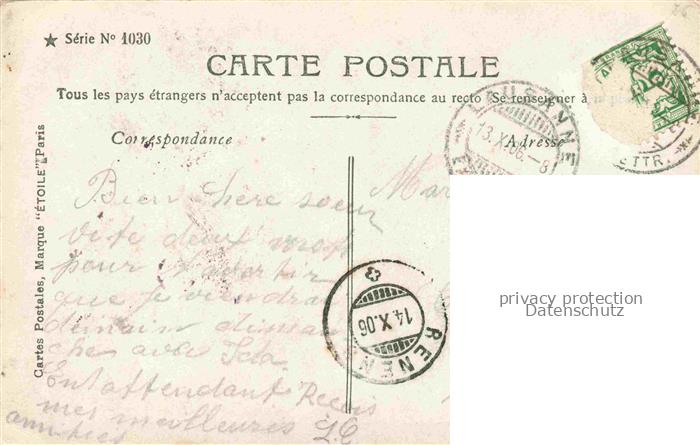 ★ Série Nº 1030
CARTE POSTALE
Tous les pays étrangers n'acceptent pas la correspondance au recto (Se renseigner à la
Correspondance
Adresse
Cartes Postales, Marque "ÉTOILE" Paris
LAUSANNE
13.X.06.-8
LETTR.
RENENS
14.X.06
Bien chere soeur
vite deux mots
pour t'avertir
que je viendrai
demain diman
che avec
En t'attendant Recois
mes meilleures
amities
privacy protection
Datenschutz